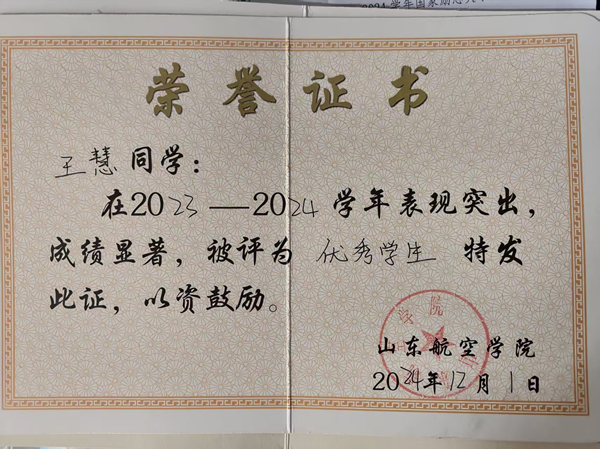 2024学年国家励志奖
荣誉证书
王慧同学：
在2023—2024学年表现突出，
成绩显著，被评为优秀学生特发
此证，以资鼓励。
山东航空学院
2024年12月1日